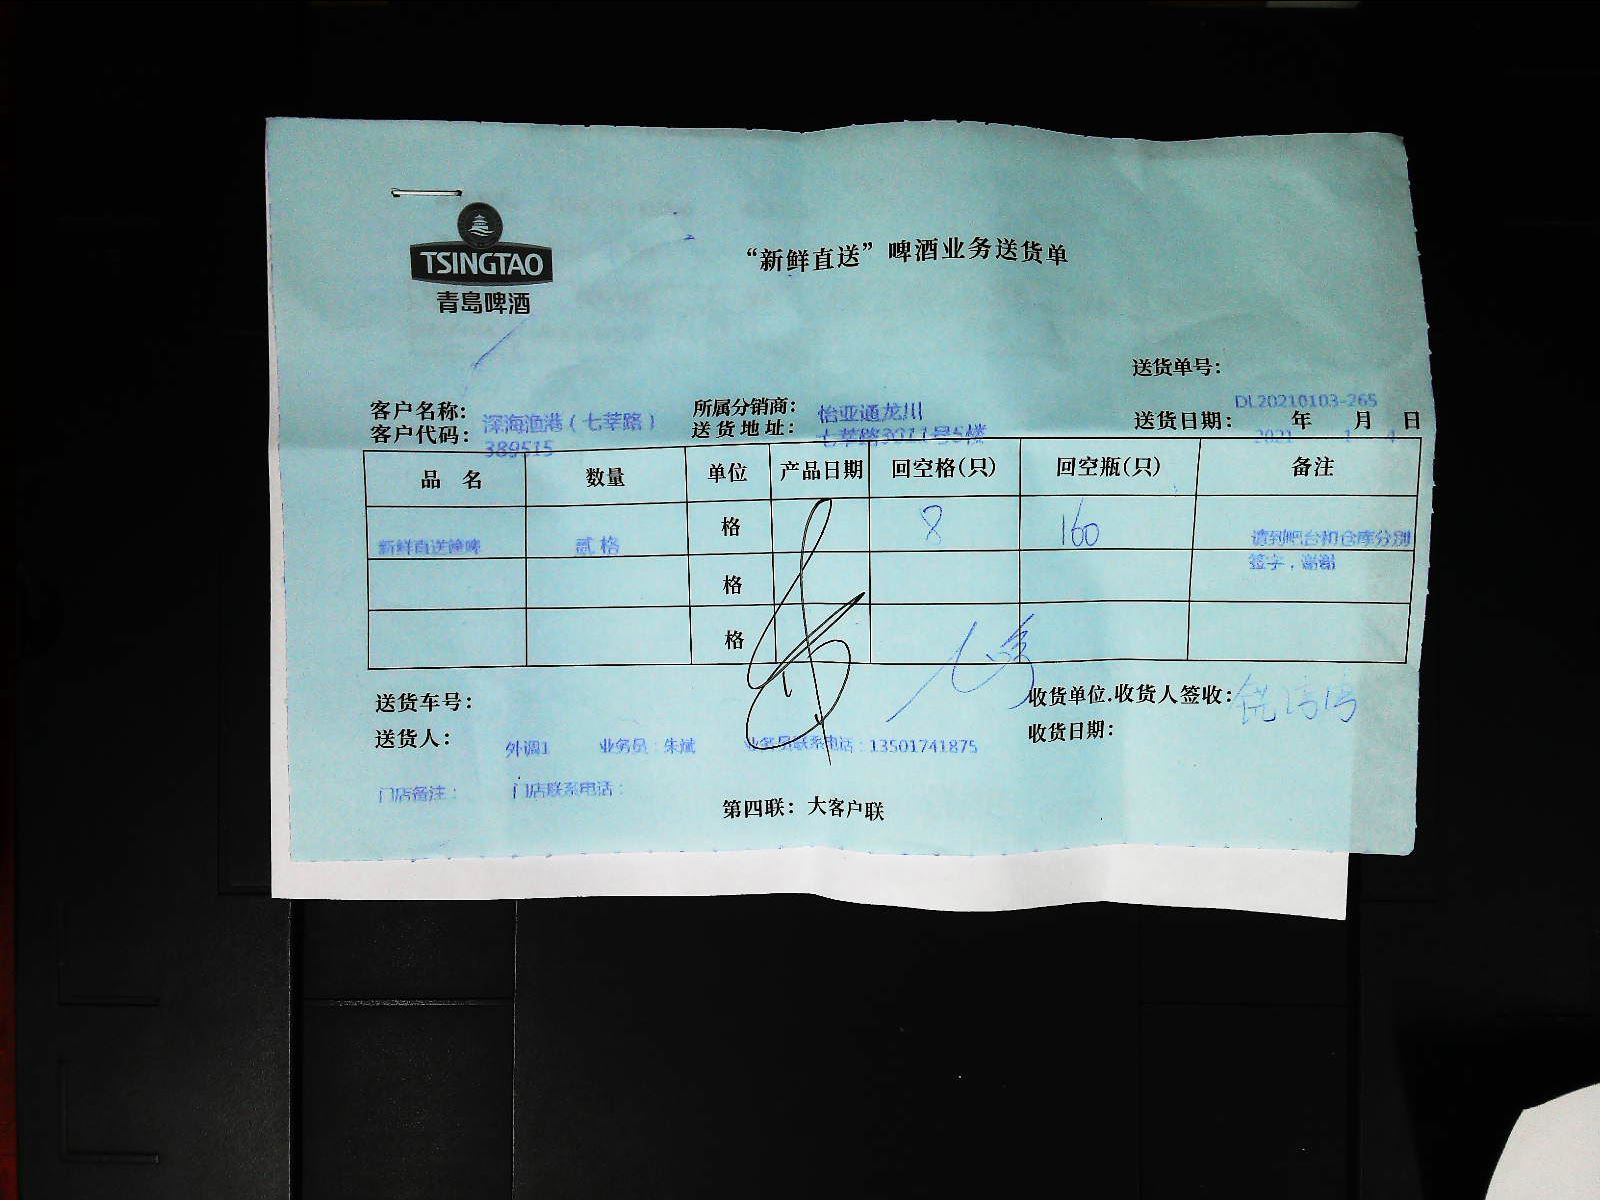 TSINGTAO
青島啤酒
“新鲜直送”啤酒业务送货单
送货单号：
DL20210103-265
客户名称： 深海渔港（七莘路） 所属分销商： 怡亚通龙川
客户代码： 389515 送货地址： 七莘路3011号5楼 送货日期： 2021 年 1 月 4 日
品 名 数量 单位 产品日期 回空格(只) 回空瓶(只) 备注
新鲜直送 贰格 格 8 160 请到吧台和仓库分别
签字，谢谢
格
格
送货车号： 收货单位.收货人签收：
送货人： 外调1 业务员：朱斌 业务员联系电话：13501741875 收货日期：
门店备注： 门店联系电话：
第四联：大客户联